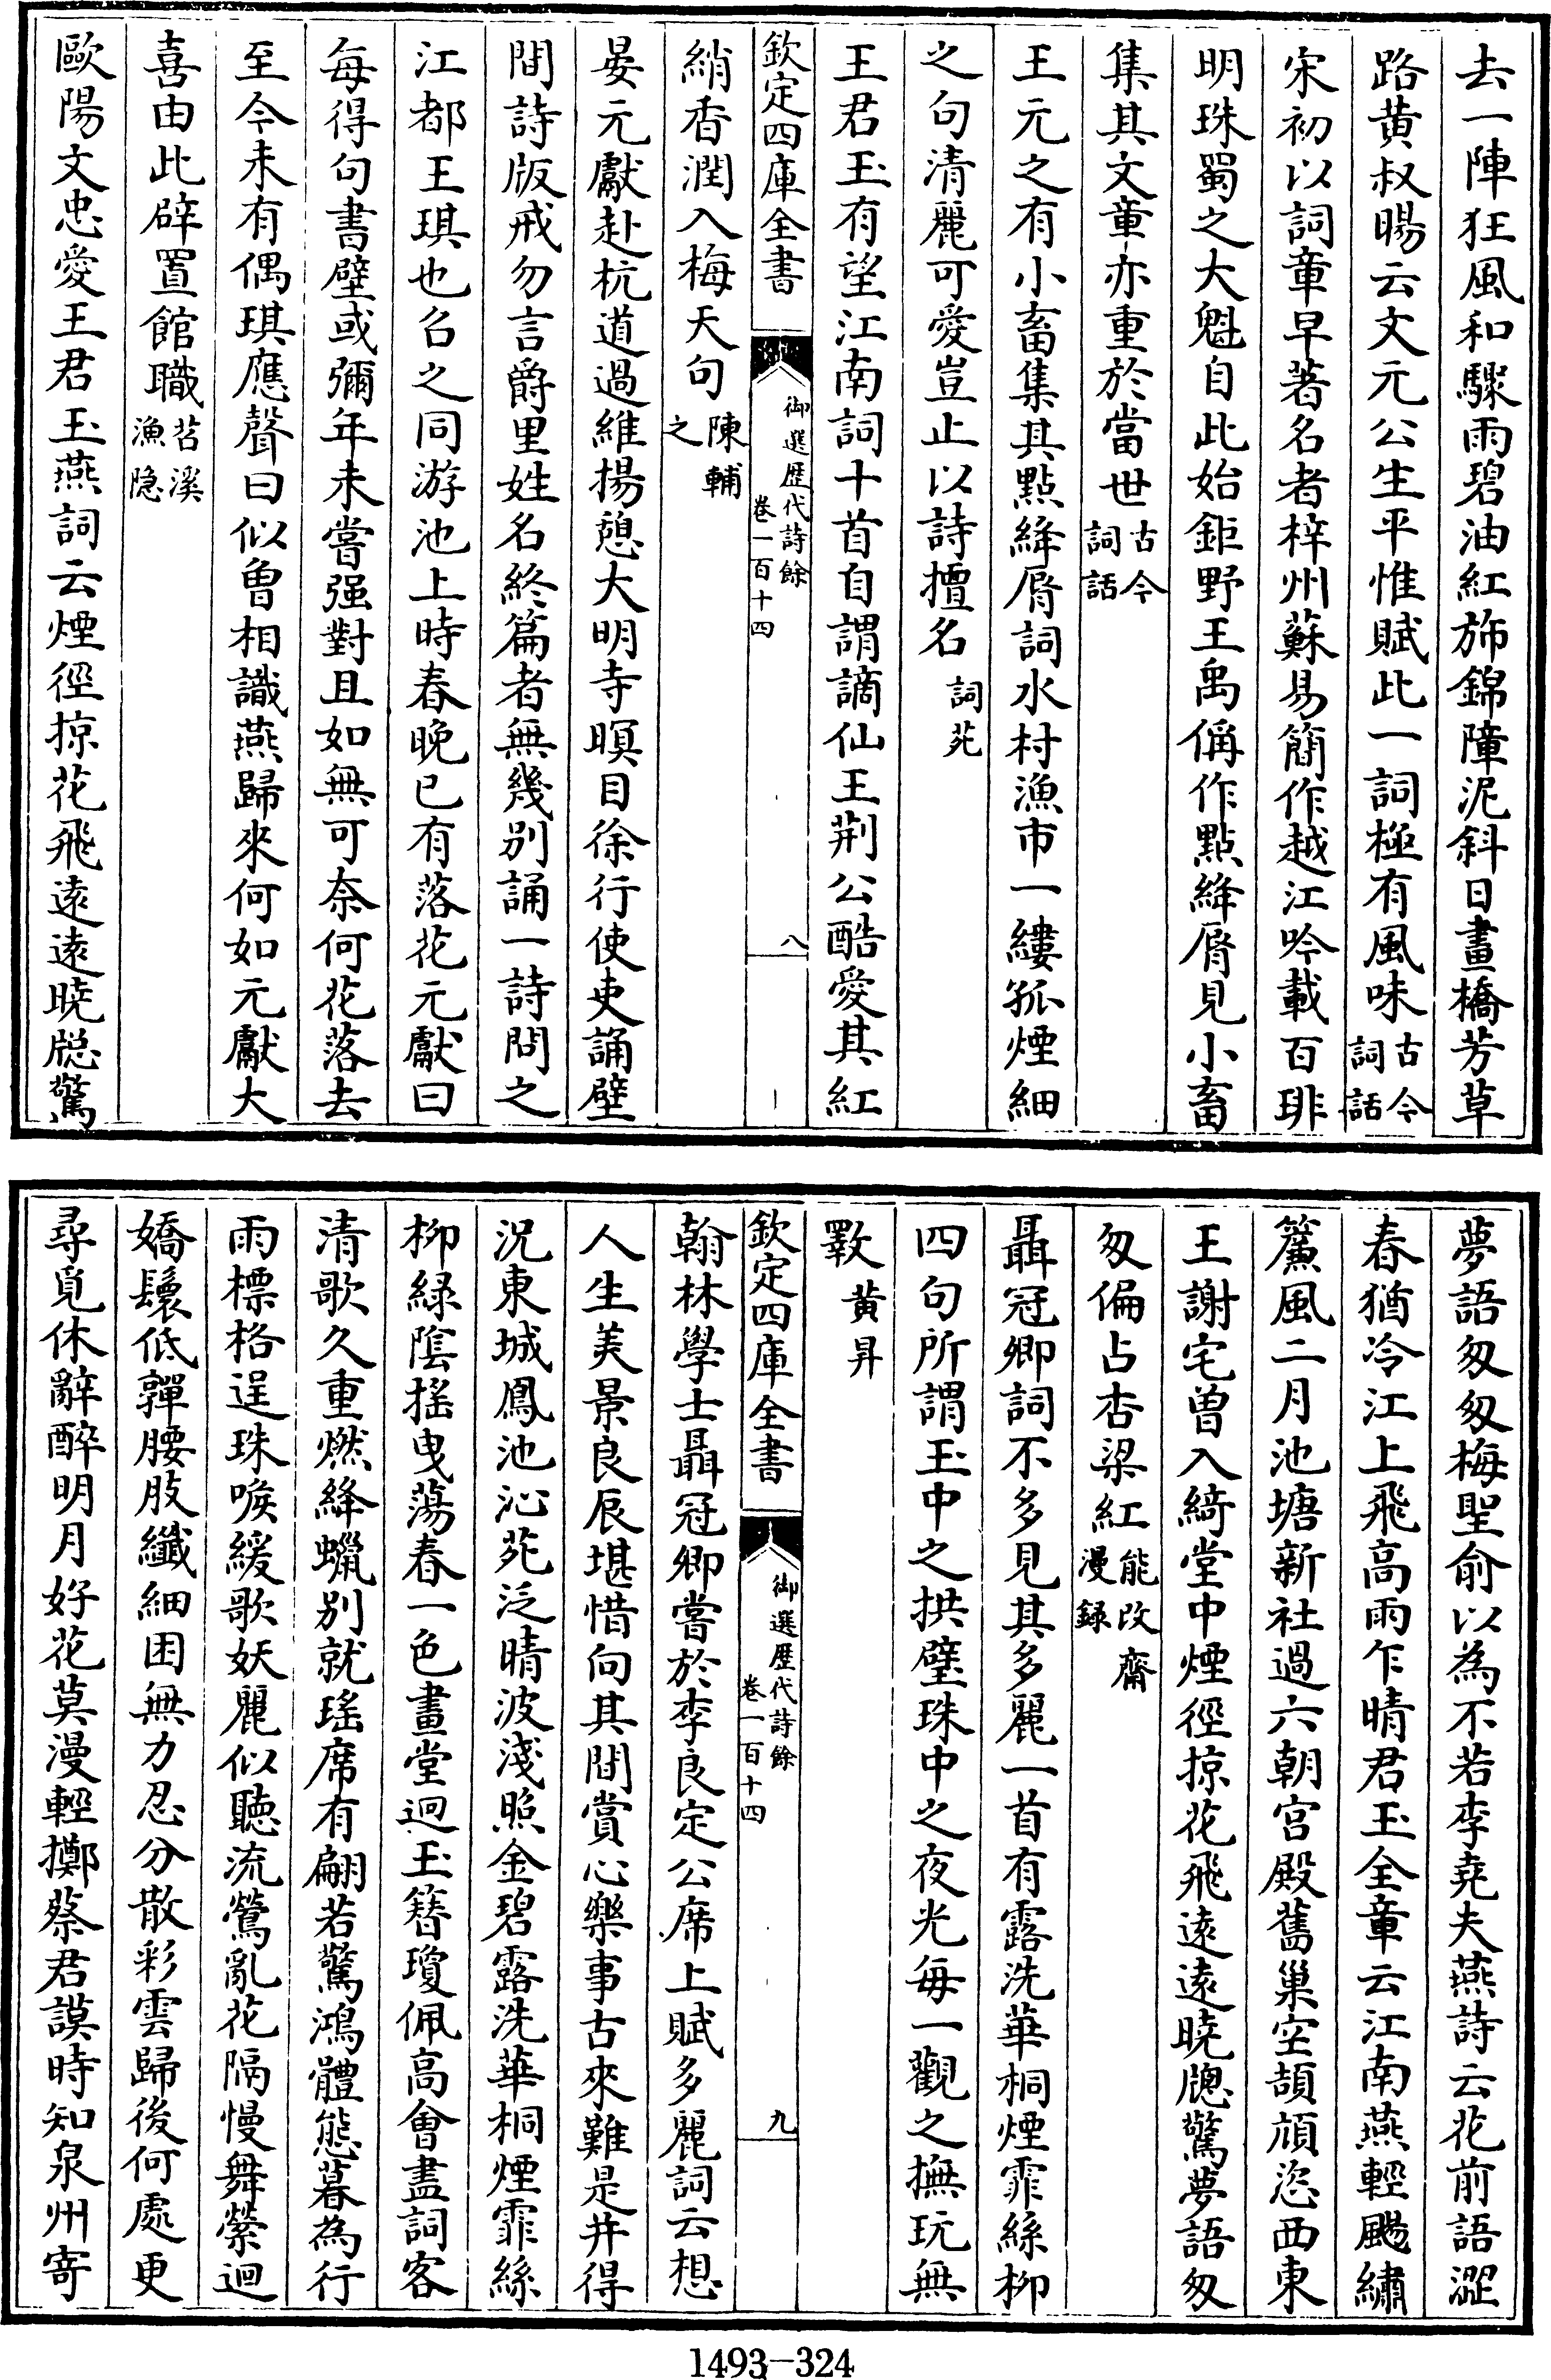 去一陣狂風和驟雨碧油紅斾錦障泥斜日畫橋芳草
路黄叔暘云文元公生平惟賦此一詞極有風味古今詞話
宋初以詞章早著名者梓州蘇易簡作越江吟載百琲
明珠蜀之大魁自此始鉅野王禹偁作點絳脣見小畜
集其文章亦重於當世古今詞話
王元之有小畜集其點絳脣詞水村漁市一縷孤煙細
之句清麗可愛豈止以詩擅名詞苑
王君玉有望江南詞十首自謂謫仙王荆公酷愛其紅
欽定四庫全書
御選歴代詩餘
卷一百十四
八
綃香潤入梅天句陳輔之
晏元獻赴杭道過維揚憩大明寺瞑目徐行使吏誦壁
間詩版戒勿言爵里姓名終篇者無幾别誦一詩問之
江都王琪也召之同游池上時春晚已有落花元獻曰
每得句書壁或彌年未嘗强對且如無可奈何花落去
至今未有偶琪應聲曰似曾相識燕歸來何如元獻大
喜由此辟置館職苕溪漁隠
歐陽文忠愛王君玉燕詞云煙徑掠花飛遠遠曉牕驚
夢語匆匆梅聖俞以為不若李堯夫燕詩云花前語澀
春猶冷江上飛高雨乍晴君玉全章云江南燕輕颺繡
簾風二月池塘新社過六朝宫殿舊巢空頡頏恣西東
王謝宅曾入綺堂中煙徑掠花飛遠遠曉牕驚夢語匆
匆偏占杏梁紅能改齋漫録
聶冠卿詞不多見其多麗一首有露洗華桐煙霏絲柳
四句所謂玉中之拱璧珠中之夜光每一觀之撫玩無
斁黄昇
欽定四庫全書
御選歴代詩餘
卷一百十四
九
翰林學士聶冠卿嘗於李良定公席上賦多麗詞云想
人生美景良辰堪惜向其間賞心樂事古來難是并得
況東城鳳池沁苑泛晴波淺照金碧露洗華桐煙霏絲
柳緑陰摇曳蕩春一色畫堂迥玉簪瓊佩高會盡詞客
清歌久重燃絳蠟别就瑤席有翩若驚鴻體態暮為行
雨標格逞珠喉緩歌妖麗似聽流鶯亂花隔慢舞縈迴
嬌鬟低嚲腰肢纖細困無力忍分散彩雲歸後何處更
尋覓休辭醉明月好花莫漫輕擲蔡君謨時知泉州寄
1493—324